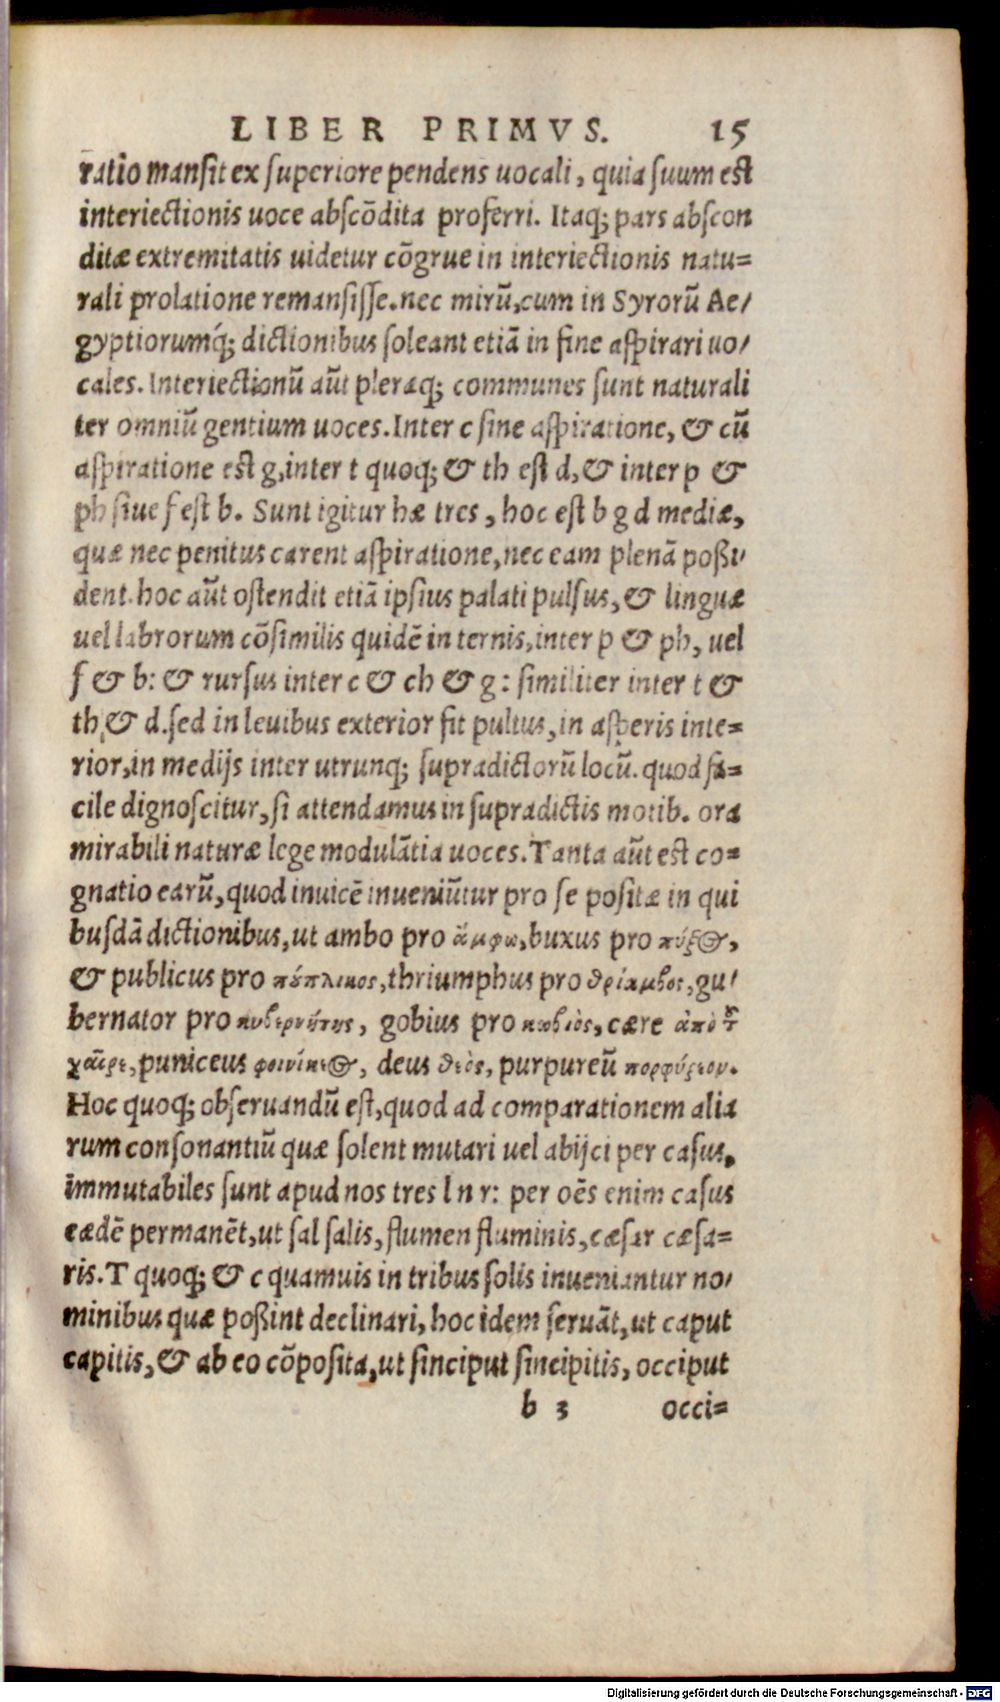 LIBER PRIMVS. 15
ratio mansit ex superiore pendens uocali, quia suum est
interiectionis uoce abscōdita proferri. Itaq; pars abscon
ditæ extremitatis uidetur cōgrue in interiectionis natu=
rali prolatione remansisse. nec mirū, cum in Syrorū Ae/
gyptiorumq́; dictionibus soleant etiā in fine aspirari uo/
cales. Interiectionū aūt pleraq; communes sunt naturali
ter omniū gentium uoces. Inter c sine aspiratione, & cū
aspiratione est g, inter t quoq; & th est d, & inter p &
ph siue f est b. Sunt igitur hæ tres, hoc est b g d mediæ,
quæ nec penitus carent aspiratione, nec eam plenā poßi/
dent. hoc aūt ostendit etiā ipsius palati pulsus, & linguæ
uel labrorum cōsimilis quidē in ternis, inter p & ph, uel
f & b: & rursus inter c & ch & g: similiter inter t &
th & d. sed in leuibus exterior fit pultus, in asperis inte=
rior, in medijs inter utrunq; supradictorū locū. quod fa=
cile dignoscitur, si attendamus in supradictis motib. ora
mirabili naturæ lege modulātia uoces. Tanta aūt est co=
gnatio earū, quod inuicē inueniūtur pro se positæ in qui
busdā dictionibus, ut ambo pro ἄμφω, buxus pro πύξος,
& publicus pro πόπλικος, thriumphus pro θρίαμβος, gu/
bernator pro κυβερνήτης, gobius pro κωβιὸς, cære ἀπὸ τοῦ
χαῖρε, puniceus φοινίκεος, deus θεὸς, purpureū πορφύρεον.
Hoc quoq; obseruandū est, quod ad comparationem alia
rum consonantiū quæ solent mutari uel abijci per casus,
immutabiles sunt apud nos tres l n r: per oēs enim casus
eædē permanēt, ut sal salis, flumen fluminis, cæsar cæsa=
ris. T quoq; & c quamuis in tribus solis inueniantur no/
minibus quæ poßint declinari, hoc idem seruāt, ut caput
capitis, & ab eo cōposita, ut sinciput sincipitis, occiput
b 3 occi=
Digitalisierung gefördert durch die Deutsche Forschungsgemeinschaft - DFG